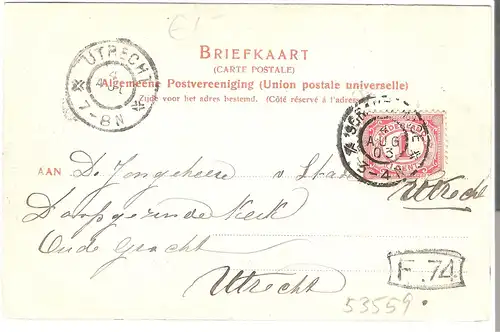 £1-
BRIEFKAART
(CARTE POSTALE)
Algemeene Postvereeniging (Union postale universelle)
Zijde voor het adres bestemd. (Côté réservé à l'adres
UTRECHT
7-8N
AUG
03
3-4
AAN De Jongeheer v. Staa
Doopsgezinde Kerk
Oude Gracht
Utrecht
Utrecht
F. 74
53559